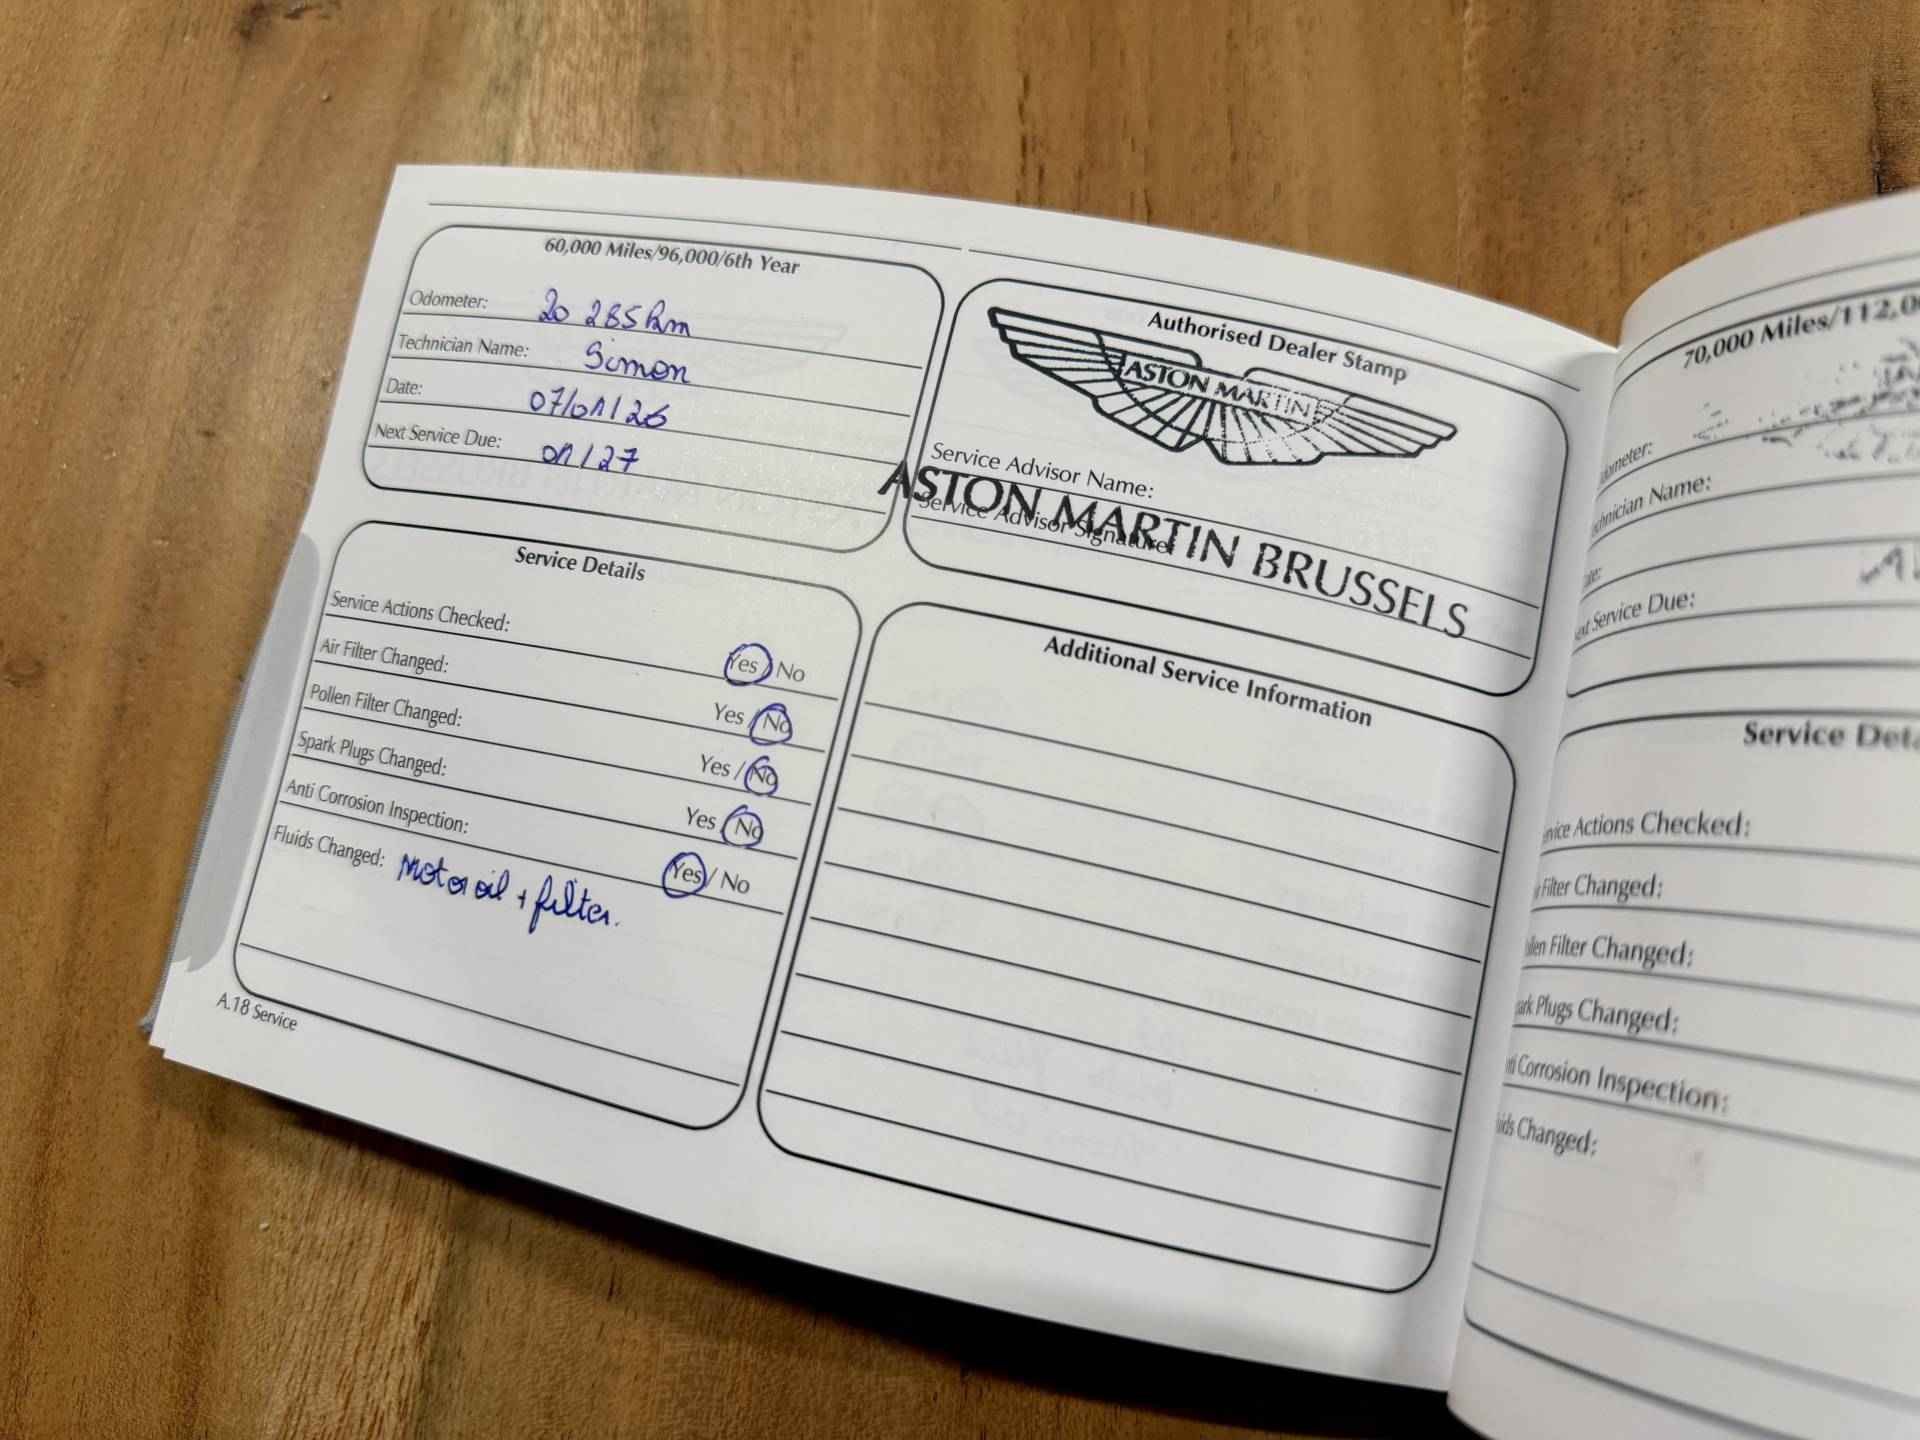 60,000 Miles/96,000/6th Year
Odometer: 20 285 km
Technician Name: Simon
Date: 07/01/26
Next Service Due: 01/27
Authorised Dealer Stamp
ASTON MARTIN
Service Advisor Name:
ASTON MARTIN BRUSSELS
Service Advisor Signature:
Service Details
Service Actions Checked: Yes / No
Air Filter Changed: Yes / No
Pollen Filter Changed: Yes / No
Spark Plugs Changed: Yes / No
Anti Corrosion Inspection: Yes / No
Fluids Changed: Motor oil + filter.
Additional Service Information
A.18 Service
70,000 Miles/112,0
Name:
Service Due:
Service
Actions Checked:
Filter Changed:
Filter Changed:
Plugs Changed:
Corrosion Inspection:
Changed: